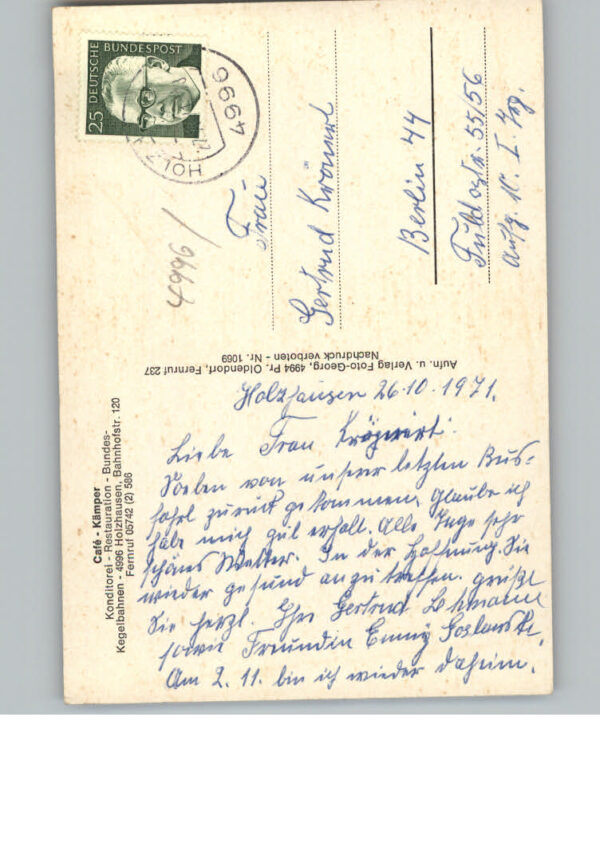 Café - Kämper
Konditorei - Restauration - Bundes-
Kegelbahnen - 4996 Holzhausen, Bahnhofstr. 120
Fernruf 05742 (2) 586
Holzhausen 26.10.1971.
Liebe Frau
Soeben von unserer letzten Bus-
fahrt zurück gekommen, glaube ich
habe mich gut erholt. Alle Tage sehr
schönes Wetter. In der Hoffnung Sie
wieder gesund anzutreffen grüßt
Sie herzl. Ihre Gertrud Lehmann
sowie Freundin Emmy
Am 2.11. bin ich wieder daheim.
Aufn. u. Verlag Foto-Georg, 4994 Pr. Oldendorf, Fernruf 237
Nachdruck verboten - Nr. 1069
25 DEUTSCHE BUNDESPOST
4996
HOLZ
4996/
Frau
Gertrud
Berlin 44
Fuldastr. 55/56
Aufg. I.